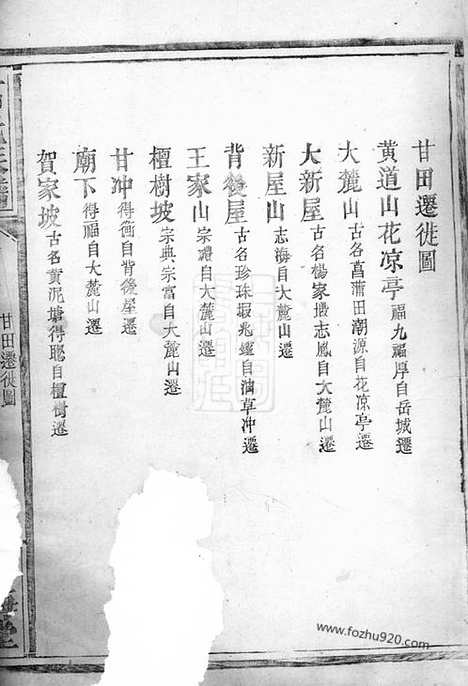 甘田遷徙圖
黃道山花凉亭 福九福厚自岳城遷
大麓山 古名菖蒲田潮源自花凉亭遷
大新屋 古名楊家塅志鳳自大麓山遷
新屋山 志海自大麓山遷
背後屋 古名珍珠塅兆纓自湳草冲遷
王家山 宗禮自大麓山遷
檀樹坡 宗典宗富自大麓山遷
甘冲 得衡自背後屋遷
廟下 得福自大麓山遷
賀家坡 古名黃泥塘得聰自檀樹遷
甘田遷徙圖
堂
www.fozhu920.com